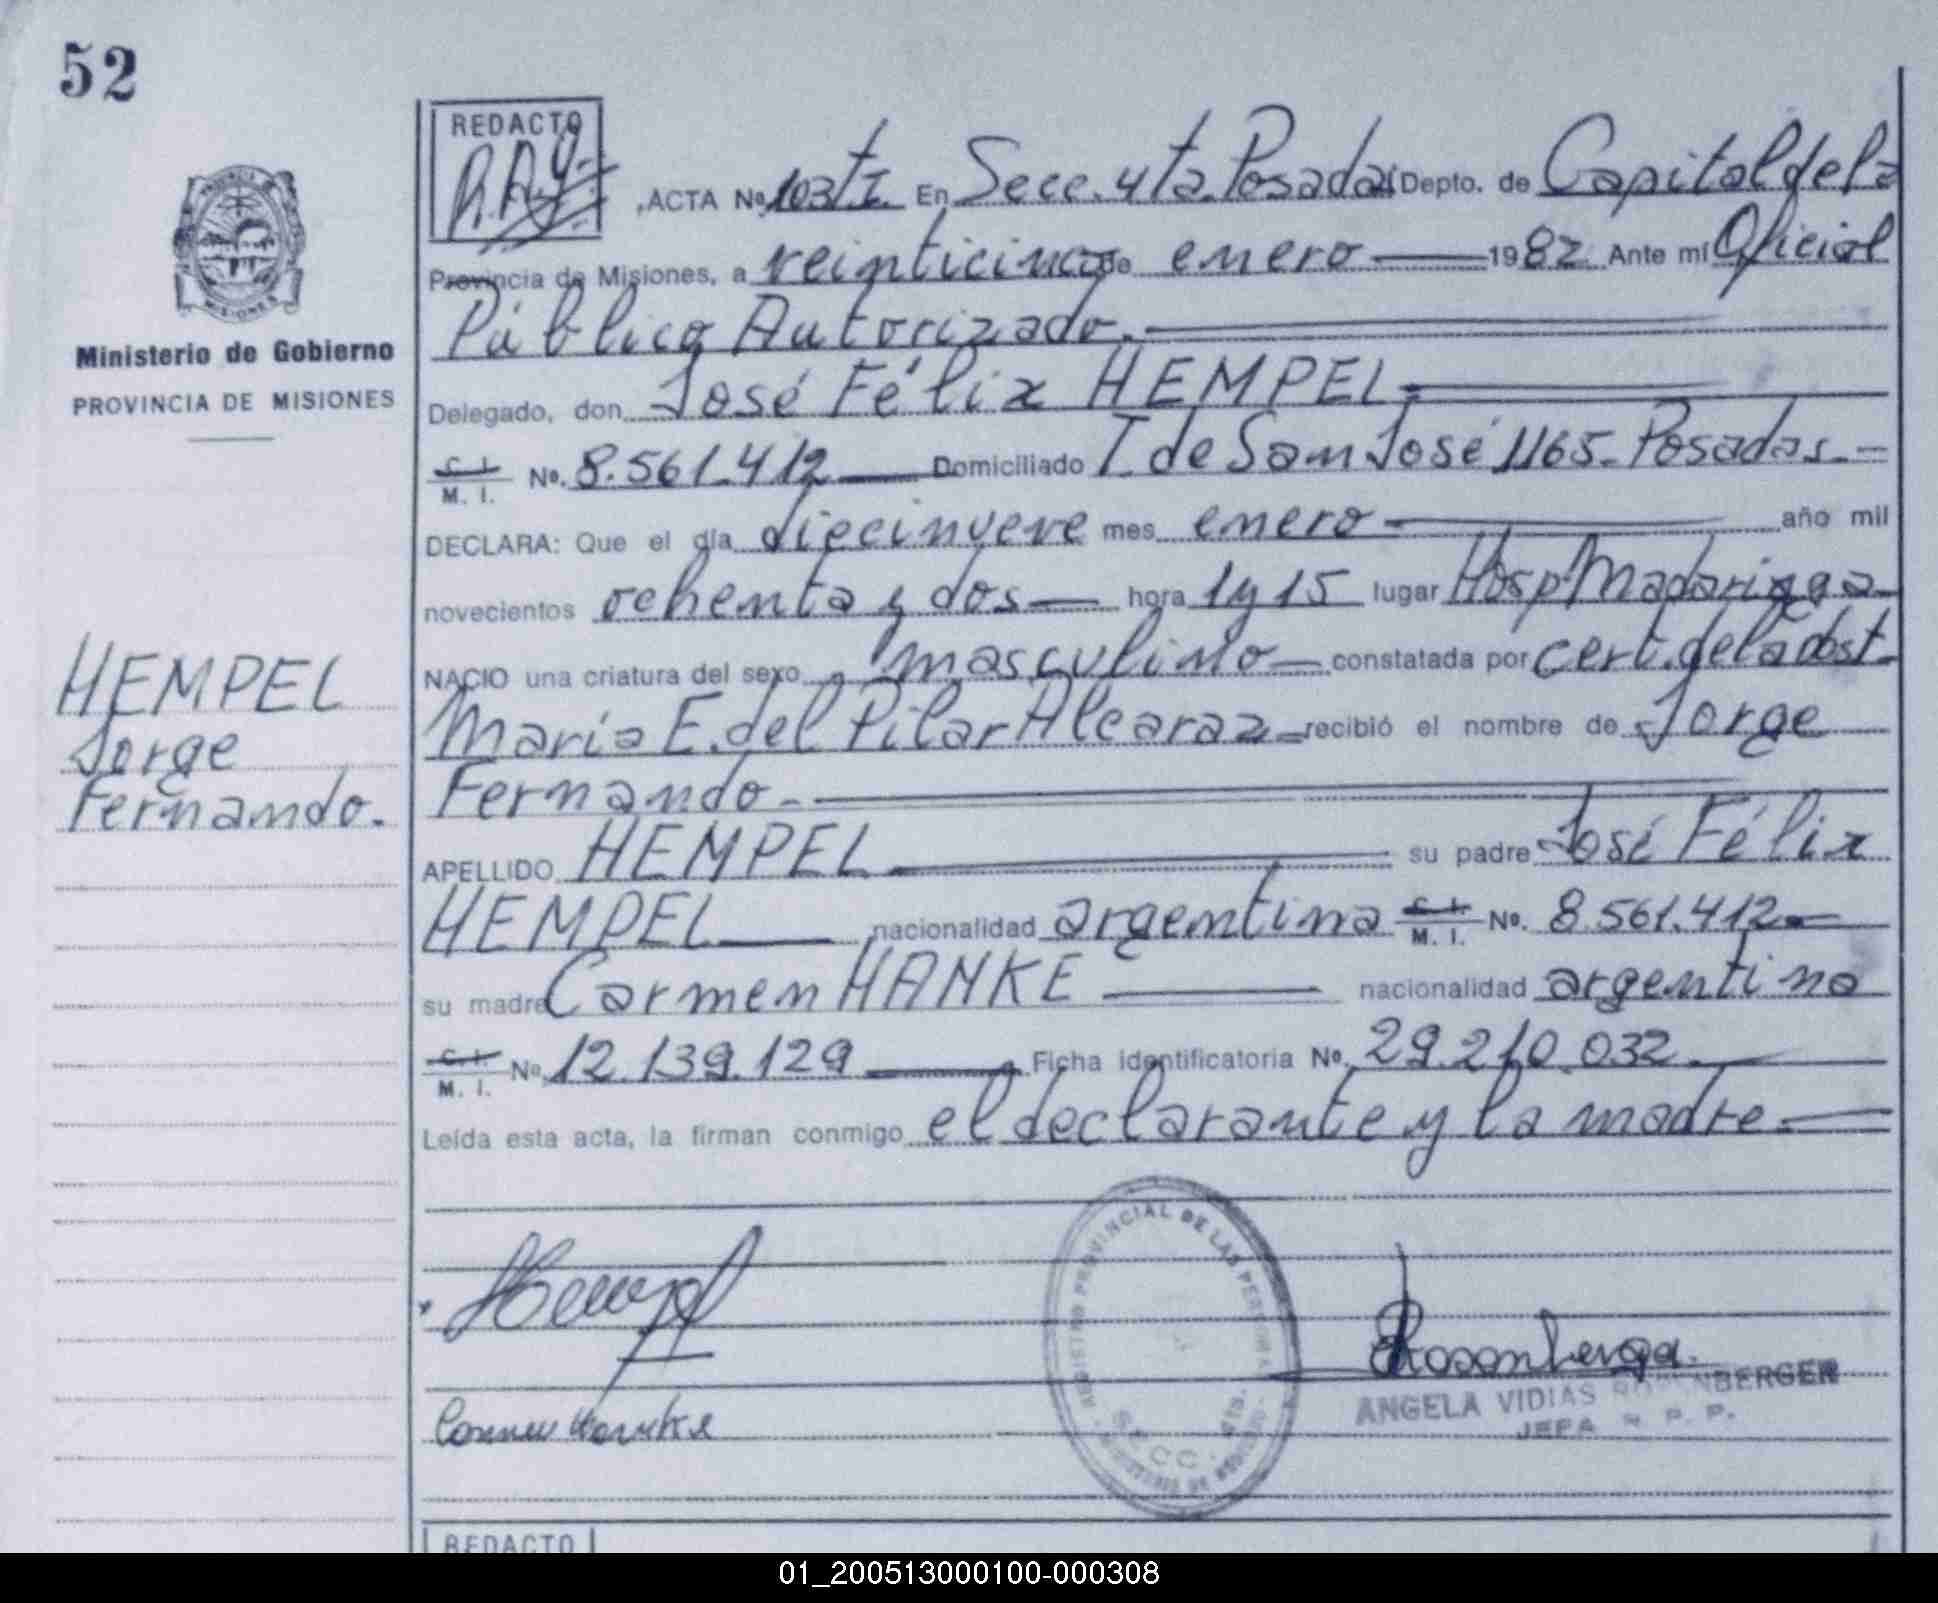 52
REDACTO
ACTA Nº 103/TI. En Secc. 4ta. Posadas Depto. de Capital de la
Provincia de Misiones, a veinticinco de enero 1982 Ante mí Oficial
Público Autorizado.
Delegado, don José Félix HEMPEL
C. I.
M. I. Nº. 8.561.412 Domiciliado T. de San José 1165. Posadas.
DECLARA: Que el día diecinueve mes enero año mil
novecientos ochenta y dos hora 1 y 15 lugar Hosp. Madariaga
NACIO una criatura del sexo masculino constatada por cert. de la obst.
María E. del Pilar Alcaraz recibió el nombre de Jorge
Fernando.
APELLIDO HEMPEL su padre José Félix
HEMPEL nacionalidad argentina C. I.
M. I. Nº. 8.561.412
su madre Carmen HANKE nacionalidad argentina
C. I.
M. I. Nº. 12.139.129 Ficha identificatoria Nº. 29.210.032
Leída esta acta, la firman conmigo el declarante y la madre
Ministerio de Gobierno
PROVINCIA DE MISIONES
HEMPEL
Jorge
Fernando.
Hempel
Carmen Hanke
REGISTRO PROVINCIAL DE LAS PERSONAS
SECC. 4ta.
Rosenberger
ANGELA VIDIAS ROSENBERGER
JEFA R. P. P.
REDACTO
01_200513000100-000308